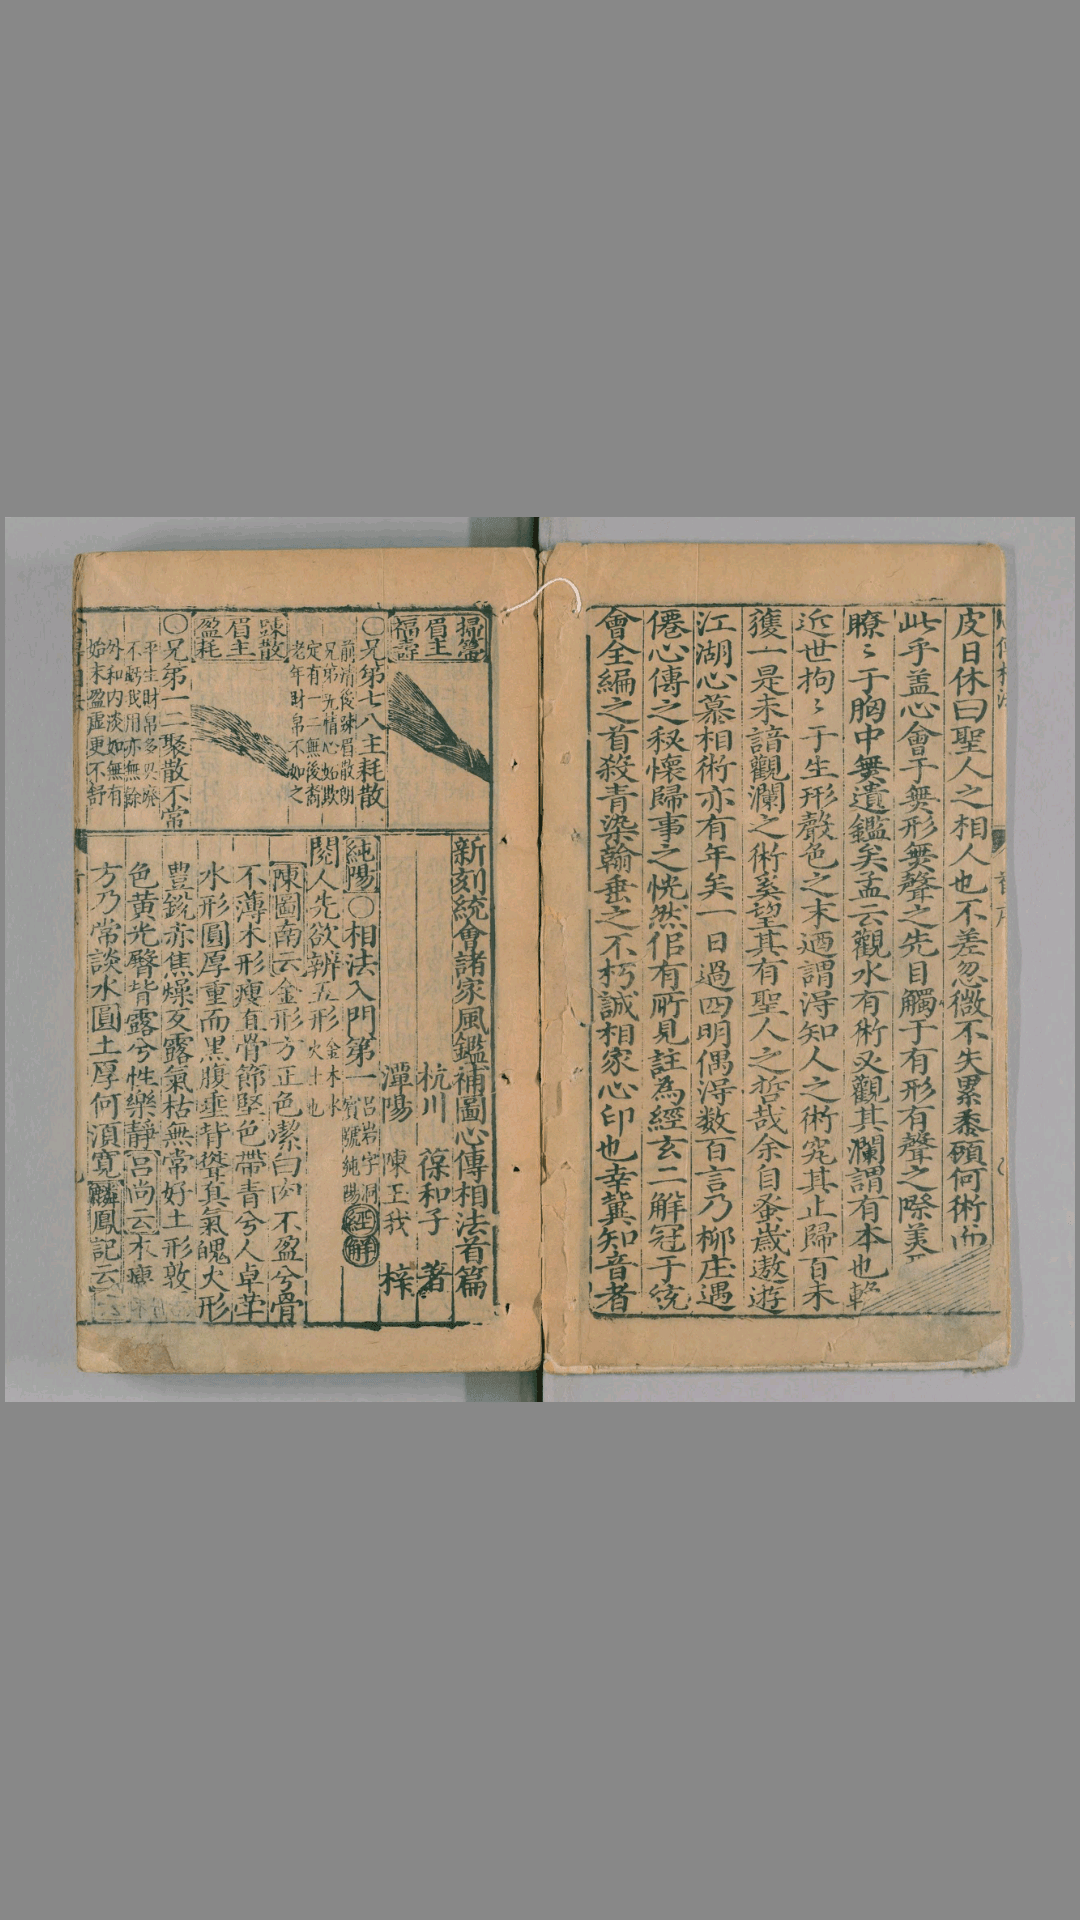 皮日休曰聖人之相人也不差忽微不失累黍顧何術而
此乎盖心會于無形無聲之先目觸于有形有聲之際美
瞭〻于胸中無遺鑑矣孟云觀水有術必觀其瀾謂有本也
近世拘〻于生形聲色之末迺謂淂知人之術究其止歸百未
獲一是未諳觀瀾之術奚望其有聖人之哲哉余自蚤歲遨遊
江湖心慕相術亦有年矣一日過四明偶淂数百言乃栁庄遇
僊心傳之秘懷歸事之恍然佀有所見註為經玄二解冠于統
會全編之首殺青染翰垂之不朽誠相家心印也幸冀知音者
掃箒
眉主
福壽
〇兄第七八主耗散
前清後疎眉散朗
兄第无情心始欺
定有一二無後裔
老年財帛不如之
踈散
眉主
盈耗
〇兄第一二聚散不常
平生財帛多興廢
不虧我用亦無餘
外和内淡如無有
始末盈虛更不舒
新刻統會諸家風鑑補圖心傳相法首篇
杭川 葆和子 著
潭陽 陳玉我 梓
純陽〇相法入門第一 吕岩字洞賔號純陽 經解
閱人先欲辨五形 金木水火土也
陳圖南云金形方正色潔白肉不盈兮骨
不薄木形瘦直骨節堅色帶青兮人卓犖
水形圓厚重而黑腹垂背聳真氣魄火形
豐銳赤焦燥反露氣枯無常好土形敦
色黄光臀背露兮性樂靜吕尚云木瘦
方乃常談水圓土厚何須寛麟鳳記云